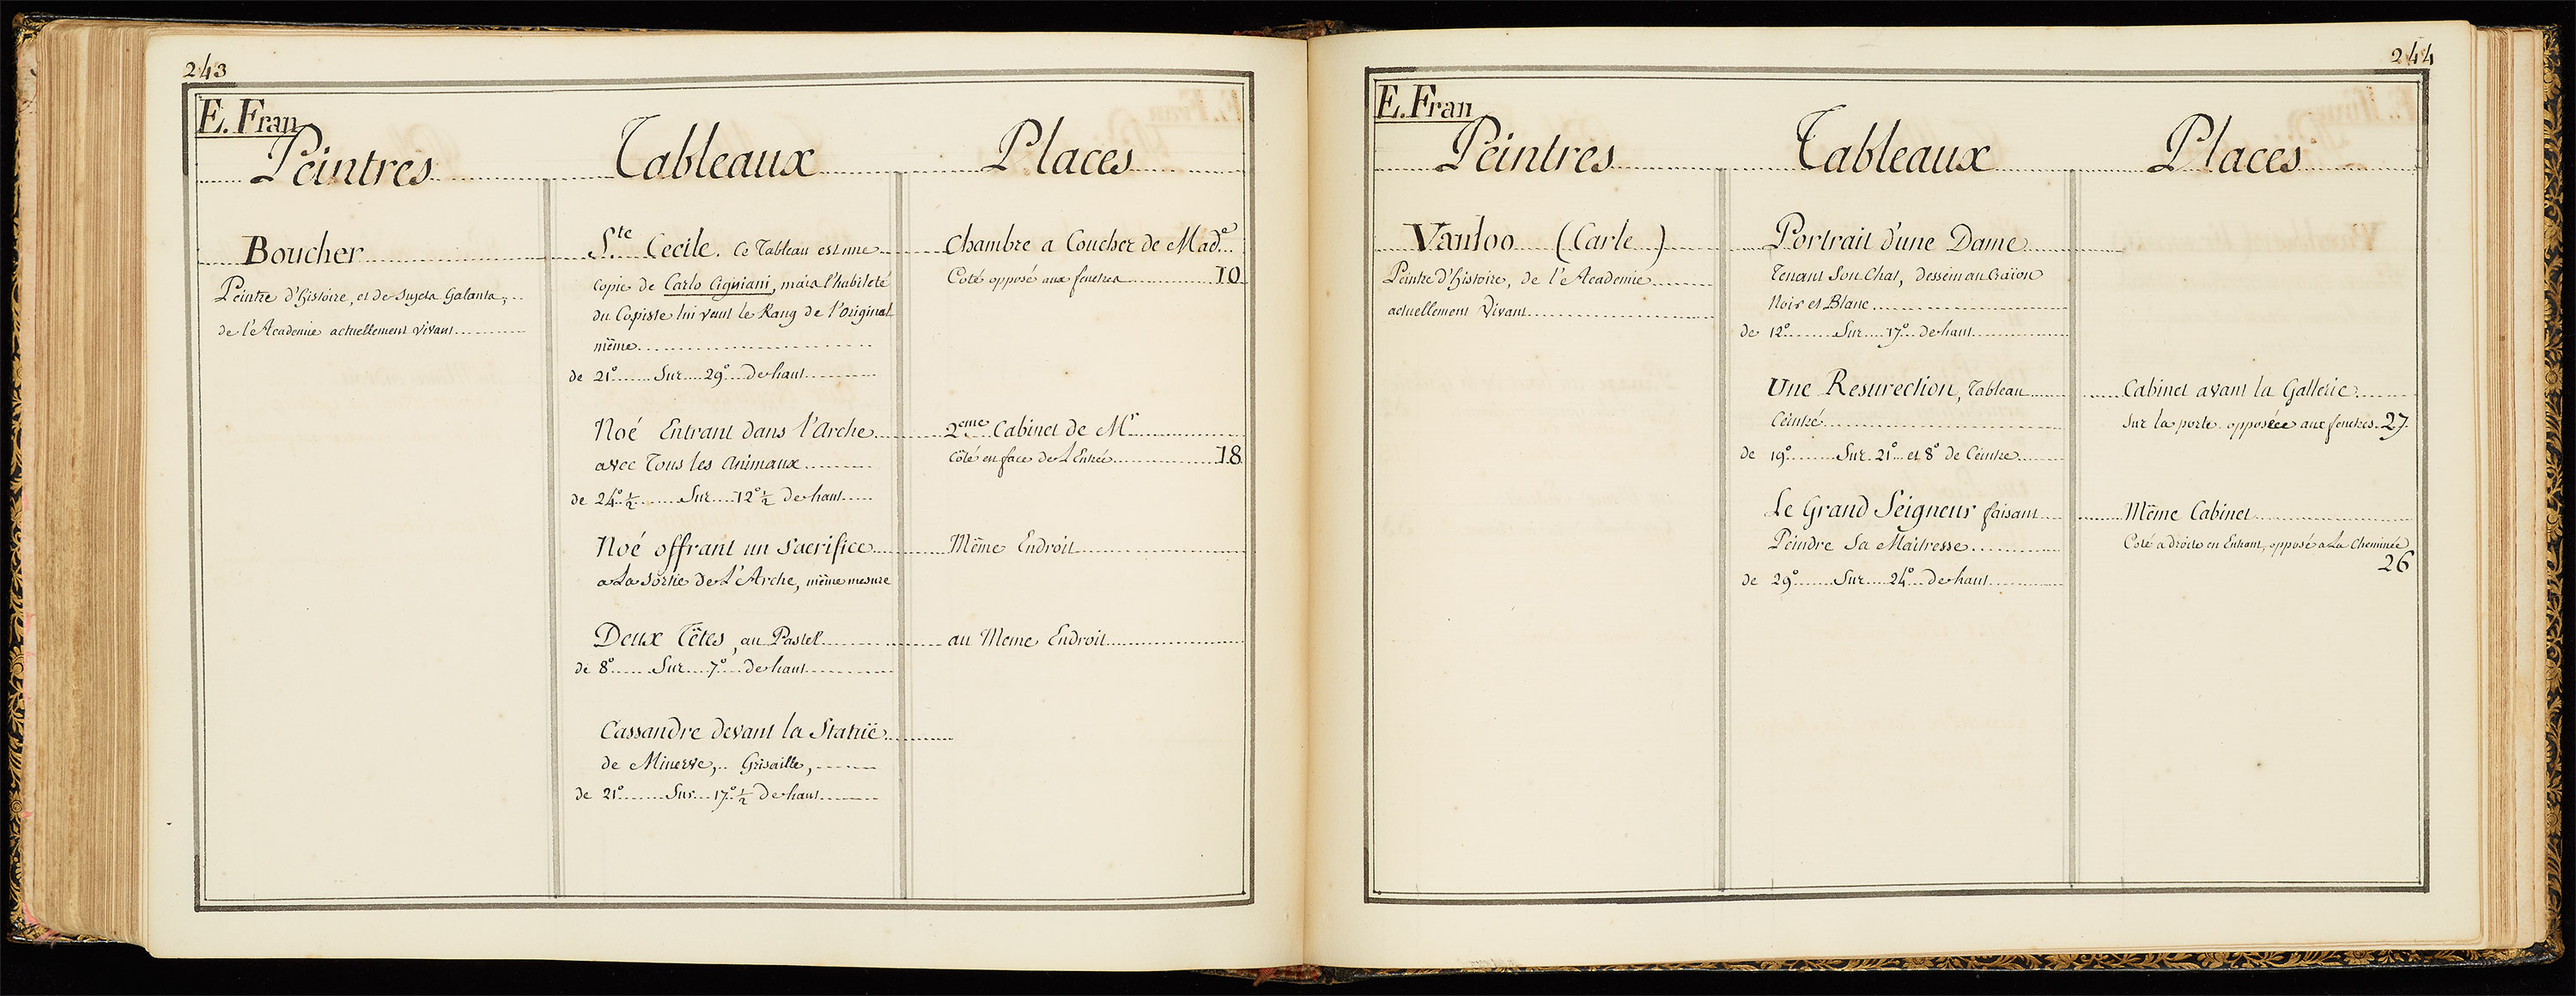 243
E. Fran
Peintres Tableaux Places
Boucher
Peintre d'histoire, et de Sujets Galants,
de l'Academie actuellement vivant
Ste Cecile. Ce Tableau est une
copie de Carlo Cigniani, mais l'habileté
du Copiste lui vaut le Rang de l'original
même
de 21° Sur 29° de haut
Chambre a Coucher de Made
Coté opposé aux fenetres 10
Noé Entrant dans l'Arche
avec Tous les Animaux
de 24° ½ Sur 12° ½ de haut
2eme Cabinet de Mr
Côté en face de L'Entrée 18
Noé offrant un Sacrifice
a La Sortie de L'Arche, même mesure
Même Endroit
Deux Têtes, au Pastel
de 8° Sur 7° de haut
au Meme Endroit
Cassandre devant la Statüe
de Minerve, Grisaille,
de 21° Sur 17° ½ de haut
244
E. Fran
Peintres Tableaux Places
Vanloo (Carle)
Peintre d'histoire, de l'Academie
actuellement Vivant
Portrait d'une Dame
Tenant Son Chat, dessein au Craïon
Noir et Blanc
de 12° Sur 17° de haut
Une Resurection, Tableau
Ceintré
de 19° Sur 21° et 8° de Ceintre
Cabinet avant la Gallerie
Sur la porte opposée aux fenetres. 27.
Le Grand Seigneur faisant
Peindre Sa Maitresse
de 29° Sur 24° de haut
Même Cabinet
Coté a droite en Entrant, opposé a La Cheminée
26